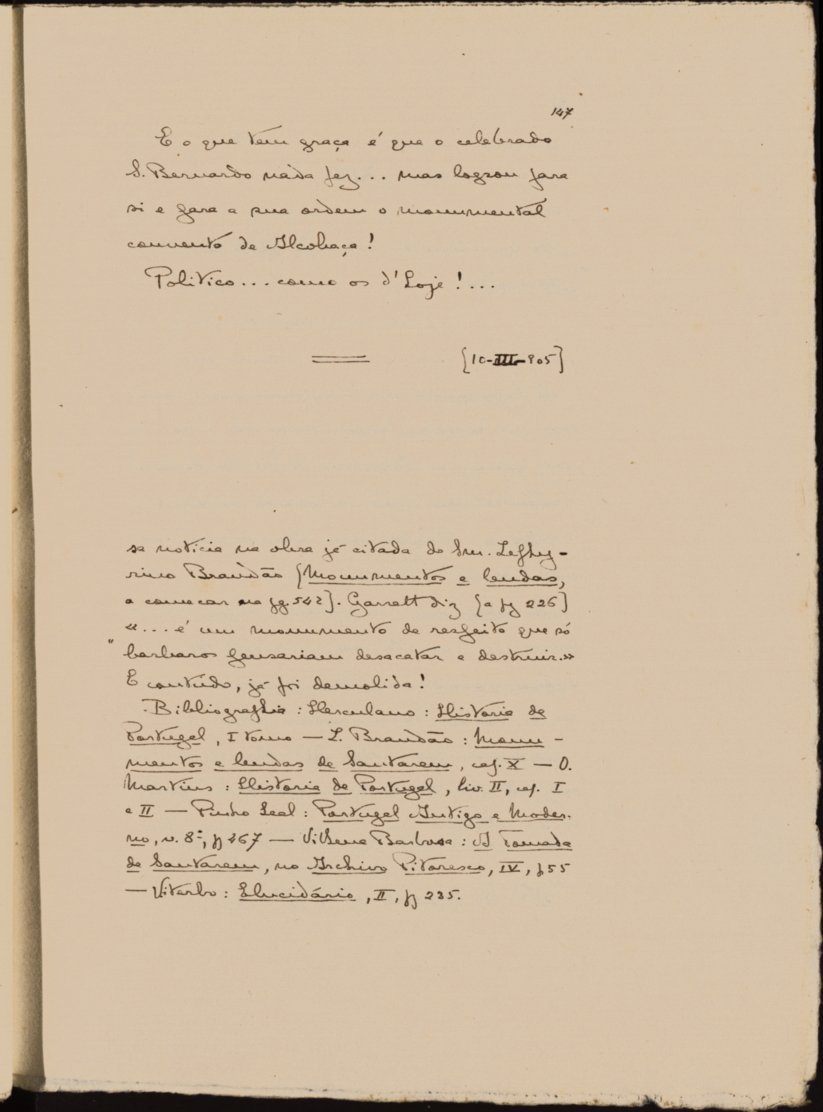 147
E o que tem graça é que o celebrado
S. Bernardo nada fez... mas logrou para
si e para a sua ordem o monumental
convento de Alcobaça!
Politico... como os d'hoje!...
[10-III-905]
sa noticia na obra já citada do Snr. Zephy-
rino Brandão [Monumentos e lendas,
a começar na pg. 542]. Garrett diz [a pg 226]
«... é um monumento de respeito que só
" barbaros pensariam desacatar e destruir.»
E contudo, já foi demolida!
Bibliographia: Herculano: Historia de
Portugal, I tomo — Z. Brandão: Monu-
mentos e lendas de Santarem, cap. X — O.
Martins: Historia de Portugal, liv. II, cap. I
e II — Pinho Leal: Portugal Antigo e Moder-
no, v. 8º, pg 467 — Vilhena Barbosa: A Tomada
de Santarem, no Archivo Pitoresco, IV, p 55
— Viterbo: Elucidário, II, pg 235.